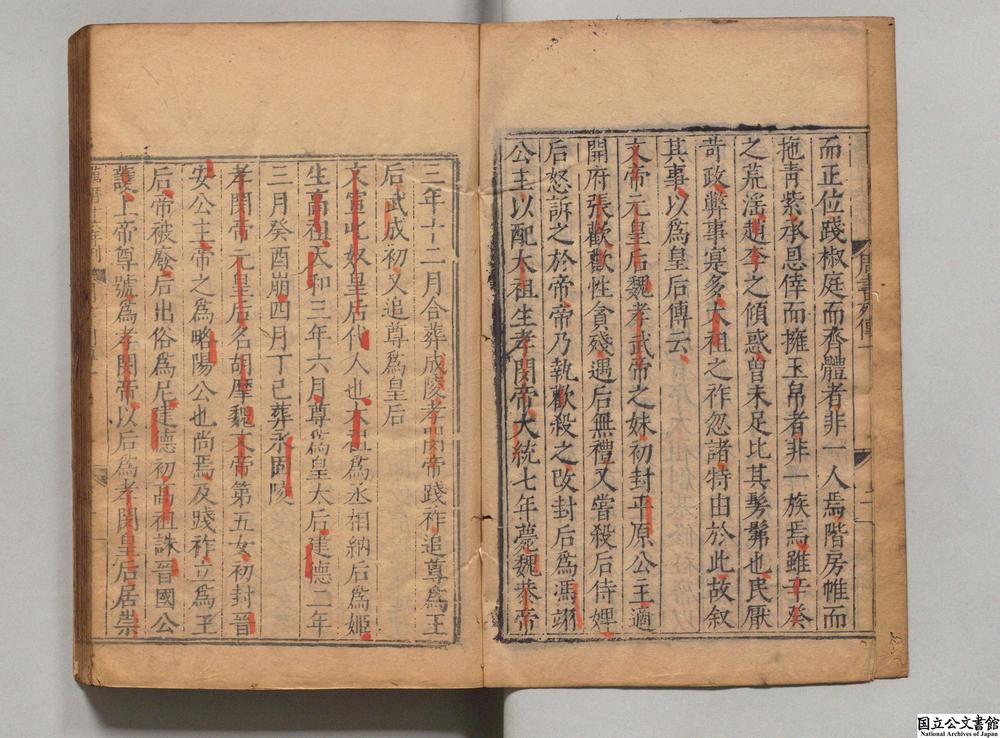 而正位踐椒庭而齊體者非一人焉階房帷而
拖青紫承恩倖而擁玉帛者非一族焉雖辛癸
之荒滛趙李之傾惑曽未足比其髣髴也民厭
苛政弊事寔多太祖之祚忽諸特由於此故叙
其事以爲皇后傳云
文帝元皇后魏孝武帝之妹初封平原公主適
開府張歡歡性貪殘遇后無禮又嘗殺后侍婢
后怒訴之於帝帝乃執歡殺之改封后爲馮翊
公主以配太祖生孝閔帝大統七年薨魏恭帝
三年十二月合葬成陵孝閔帝踐祚追尊爲王
后武成初又追尊爲皇后
文宣叱奴皇后代人也太祖爲丞相納后爲姬
生高祖天和三年六月尊爲皇太后建德二年
三月癸酉崩四月丁巳葬永固陵
孝閔帝元皇后名胡摩魏文帝第五女初封晉
安公主帝之爲略陽公也尚焉及踐祚立爲王
后帝被廢后出俗爲尼建德初高祖誅晉國公
護上帝尊號爲孝閔帝以后爲孝閔皇后居崇
国立公文書館
National Archives of Japan